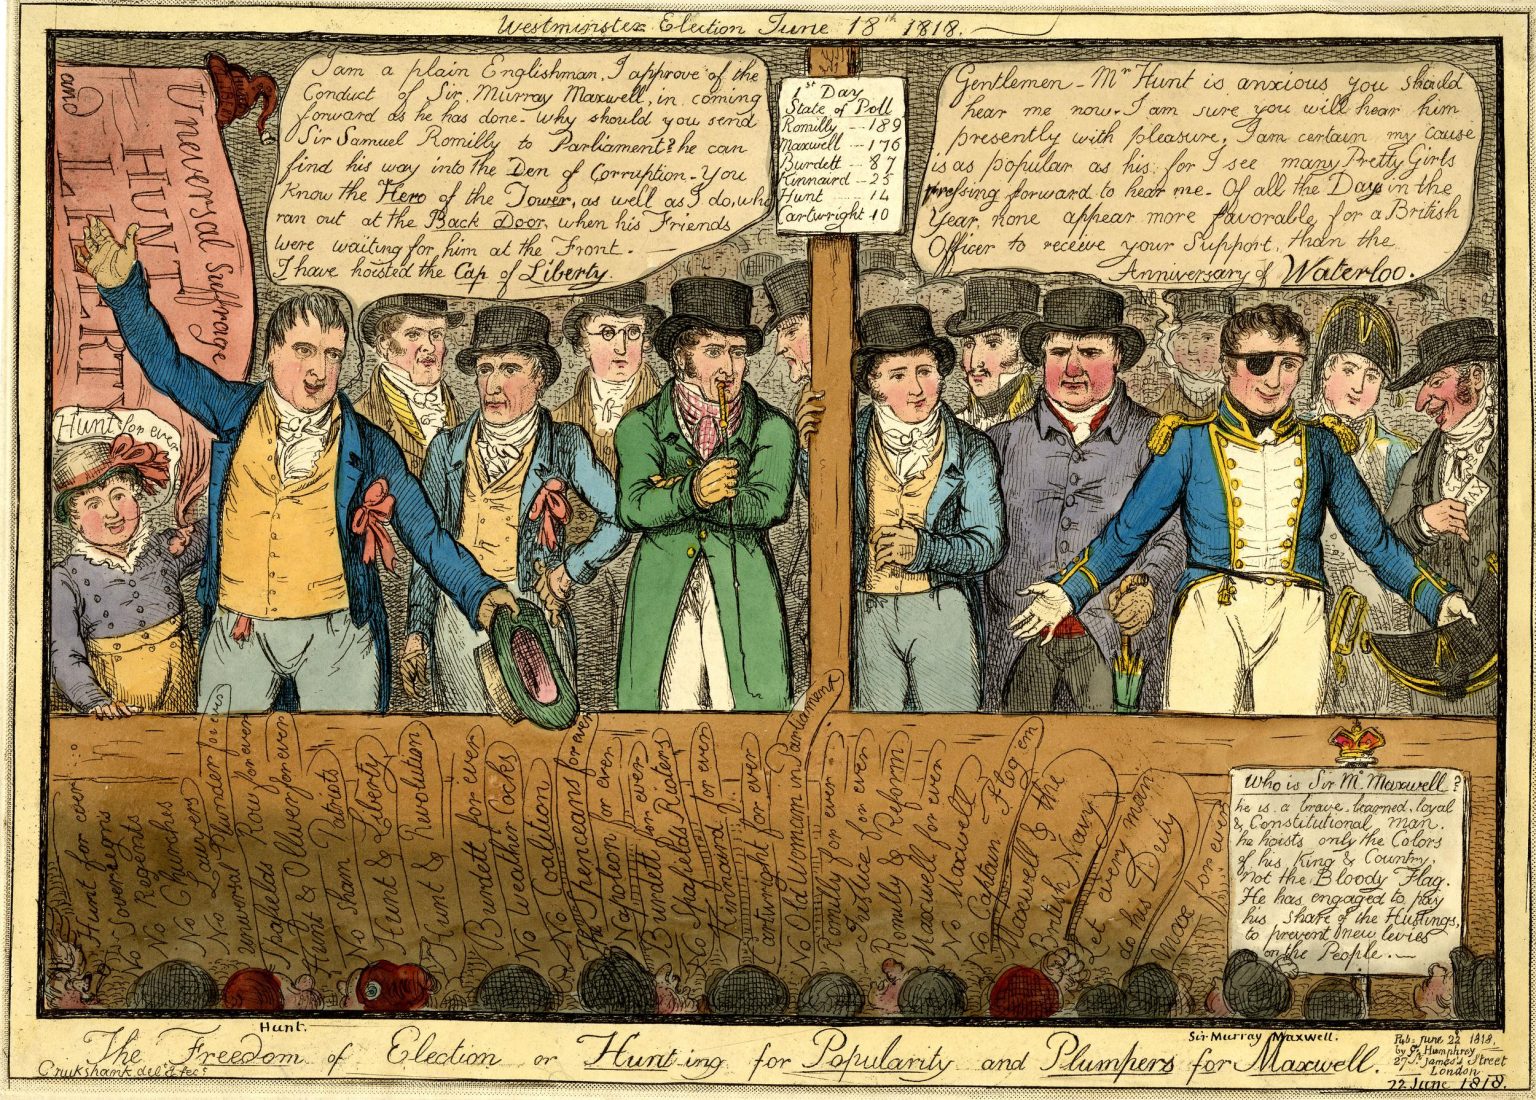 Westminster Election June 18th 1818.
Universal Suffrage
HUNT
and LIBERTY
Hunt for ever
I am a plain Englishman, I approve of the
Conduct of Sir Murray Maxwell, in coming
forward as he has done - Why should you send
Sir Samuel Romilly to Parliament? he can
find his way into the Den of Corruption - You
Know the Hero of the Tower, as well as I do, who
ran out at the Back Door, when his Friends
were waiting for him at the Front. -
I have hoisted the Cap of Liberty.
1st Day
State of Poll
Romilly --- 189
Maxwell --- 176
Burdett --- 87
Kinnaird -- 25
Hunt --- 14
Cartwright 10
Gentlemen - Mr Hunt is anxious you should
hear me now - I am sure you will hear him
presently with pleasure, I am certain my cause
is as popular as his, for I see many Pretty Girls
pressing forward to hear me - Of all the Days in the
Year, none appear more favorable, for a British
Officer to receive your Support, than the
Anniversary of Waterloo.
Hunt for ever
No Sovereigns
No Regents
No Churches
No Lawyers
No Plunder for ever
Universal Row for ever
Spafields
Hunt & Olliver for ever
No sham Patriots
Hunt & Liberty
Hunt & Revolution
Burdett for ever
No Weather Cocks
No Coalition
The Spenceans for ever
Napoleon for ever
Burdett for ever
No Spafields Rioters
Kinnaird for ever
Cartwright for ever
No Old Woman in Parliament
Romilly for ever
Justice for ever
Romilly & Reform
Maxwell for ever
No Maxwell
No Captain Flog'em
Maxwell & the
British Navy
Let every man
do his Duty
Max for ever
Who is Sir M. Maxwell?
he is a brave learned, loyal
& Constitutional man.
he hoists only the Colors
of his King & Country,
not the Bloody Flag.
He has engaged to pay
his share of the Hustings,
to prevent new levies
on the People. -
Hunt.
Sir Murray Maxwell.
The Freedom of Election or Hunt-ing for Popularity and Plumpers for Maxwell.
Cruikshank del & fec
Pub: June 22d 1818,
by G. Humphrey
27 St James's Street
London
22 June 1818.